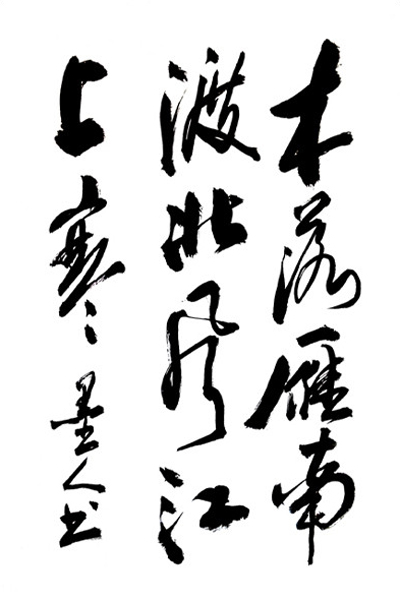 木落雁南
渡北风江
上寒墨人书